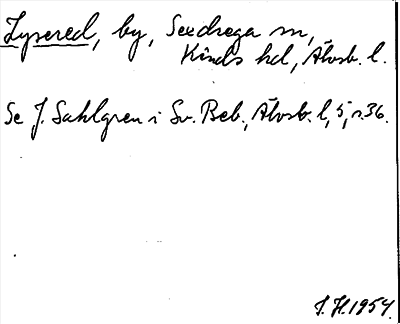 Lysered, by, Sexdrega sn,
Kinds hd, Älvsb. l.
Se J. Sahlgren i Sv. Beb., Älvsb. l, 5, s. 36.
J. H. 1954.